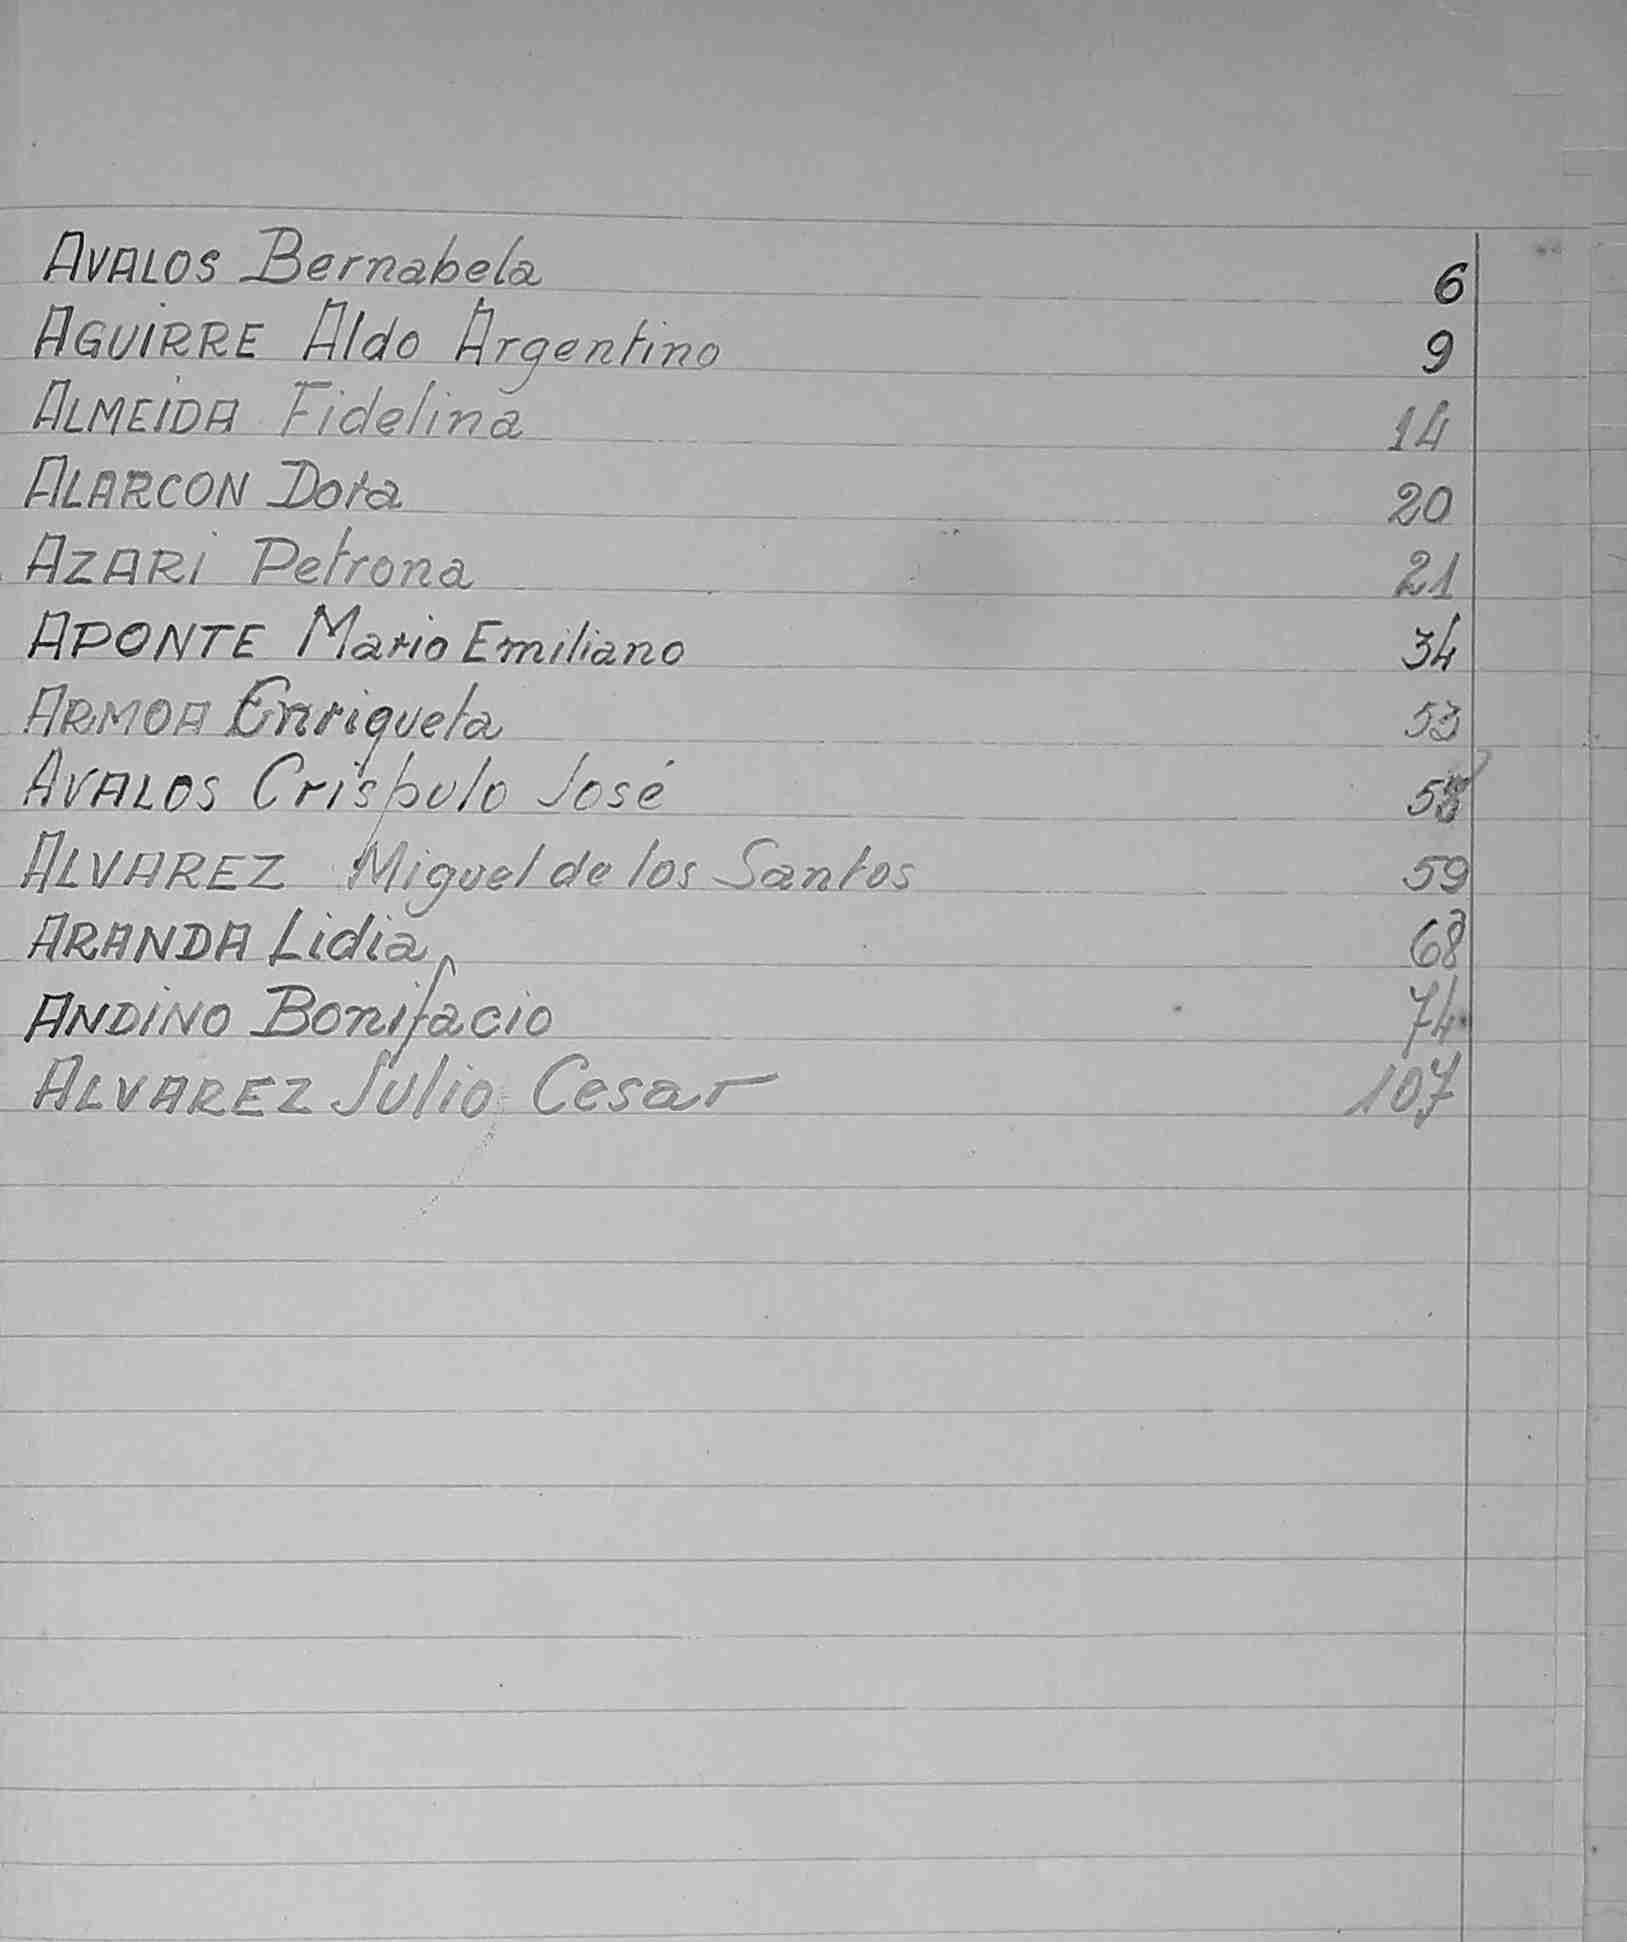 AVALOS Bernabela 6
AGUIRRE Aldo Argentino 9
ALMEIDA Fidelina 14
ALARCON Dora 20
AZARI Petrona 21
APONTE Mario Emiliano 34
ARMOA Enriqueta 53
AVALOS Crispulo José 58
ALVAREZ Miguel de los Santos 59
ARANDA Lidia 68
ANDINO Bonifacio 74
ALVAREZ Julio Cesar 107